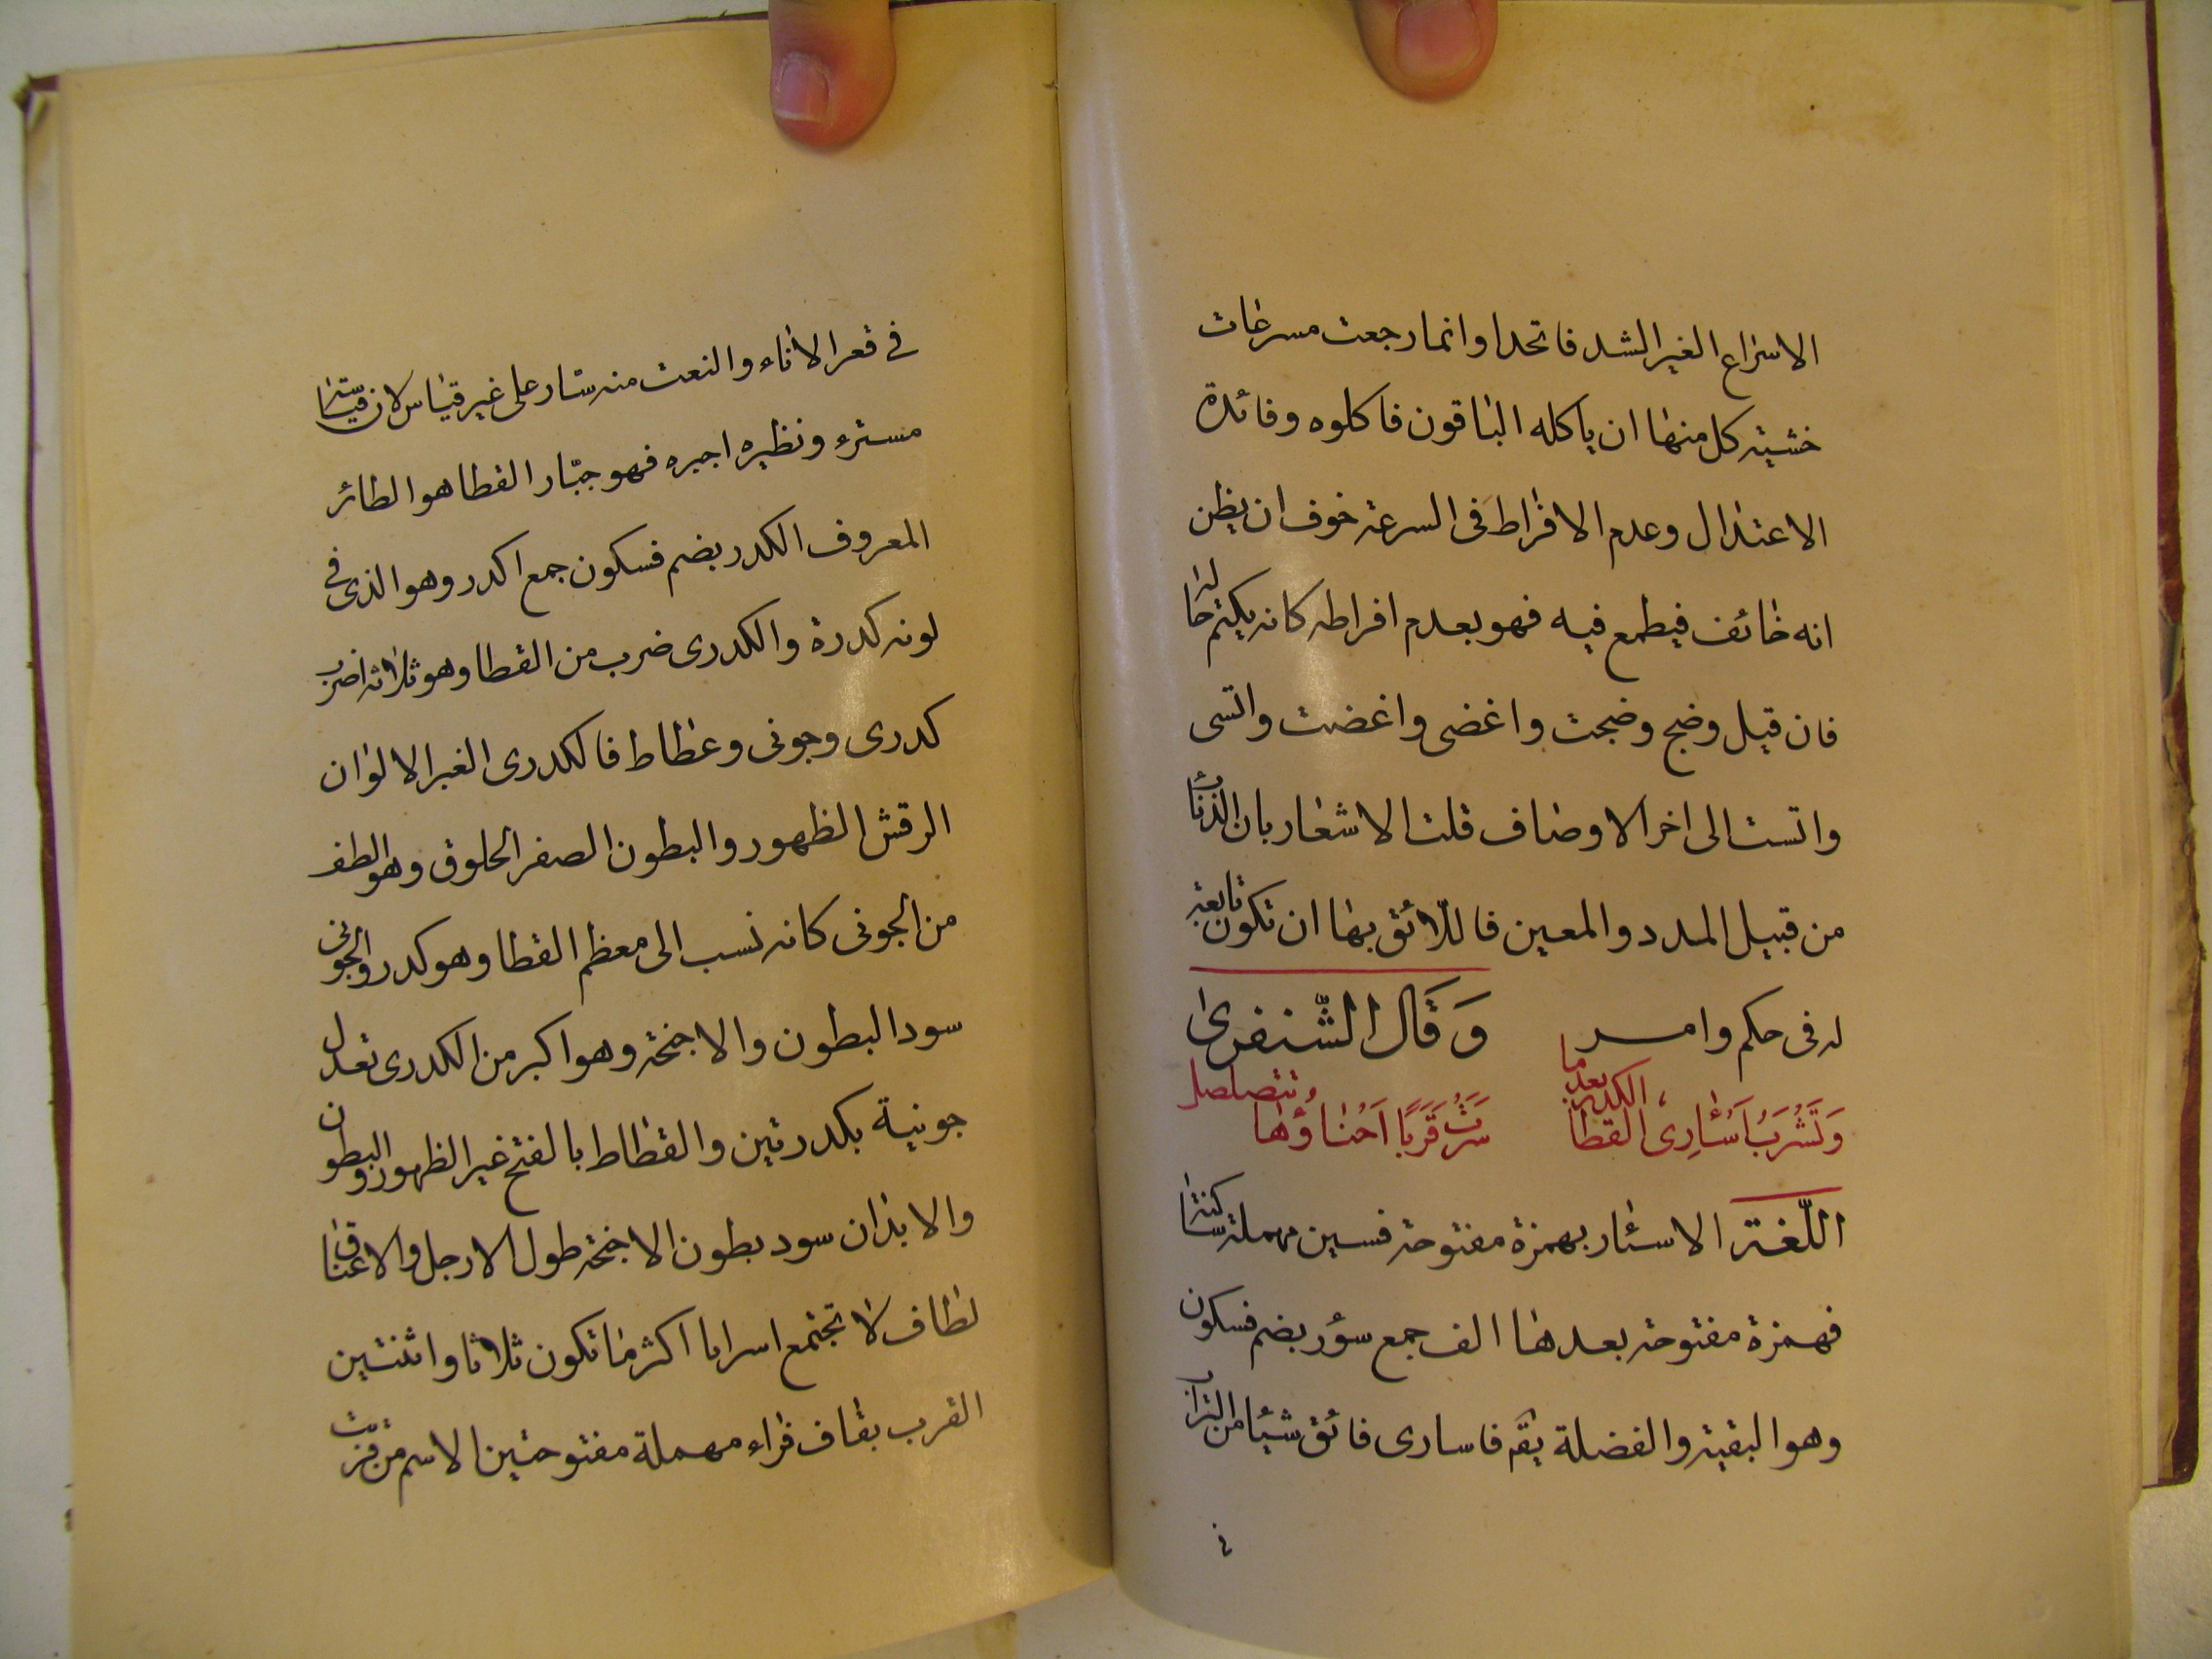 الاسراع الغير الشد فاتحدا وانما رجعت مسرعات
خشية كل منها ان ياكله الباقون فاكلوه وفائدة
الاعتدال وعدم الافراط فى السرعة خوف ان يظن
انه خائف فيطمع فيه فهو بعدم افراطه كانه يكتم حاله
فان قيل وضج وضجت واغضى واغضت واتسى
واتست الى اخر الاوصاف قلت الاشعار بان الذئاب
من قبيل المدد والمعين فاللائق بها ان تكون تابعة
له فى حكم وامر وَقَال الشّنفرى
وَتَشْرَبُ اَسْئارِى القطا الكدر بعدما سَرَتْ قَرَبًا اَحْنَاؤُها تتصلصل
اللّغة الاسئار بهمزة مفتوحة فسين مهملة ساكنة
فهمزة مفتوحة بعدها الف جمع سؤر بضم فسكون
وهو البقية والفضلة يقم فاسارى فائق شيئا من الشراب
فى قعر الاناء والنعت منه ستار على غير قياس لان قياسه
مسئرء ونظيره اجبره فهو جبّار القطا هو الطائر
المعروف الكدر بضم فسكون جمع اكدر وهو الذى فى
لونه كدرة والكدرى ضرب من القطا وهو ثلاثة اضرب
كدرى وجونى وغطاط فالكدرى الغبر الالوان
الرقش الظهور والبطون الصفر الحلوق وهو الطف
من الجونى كانه نسب الى معظم القطا وهو كدر والجونى
سود البطون والاجنحة وهو اكبر من الكدرى تعدل
جونية بكدرتين والقطاط بالفتح غبر الظهور والبطون
والابدان سود بطون الاجنحة طول الارجل والاعناق
لطاف لا تجتمع اسرابا اكثر ما تكون ثلاثا واثنتين
القرب بقاف فراء مهملة مفتوحتين الاسم من قربت